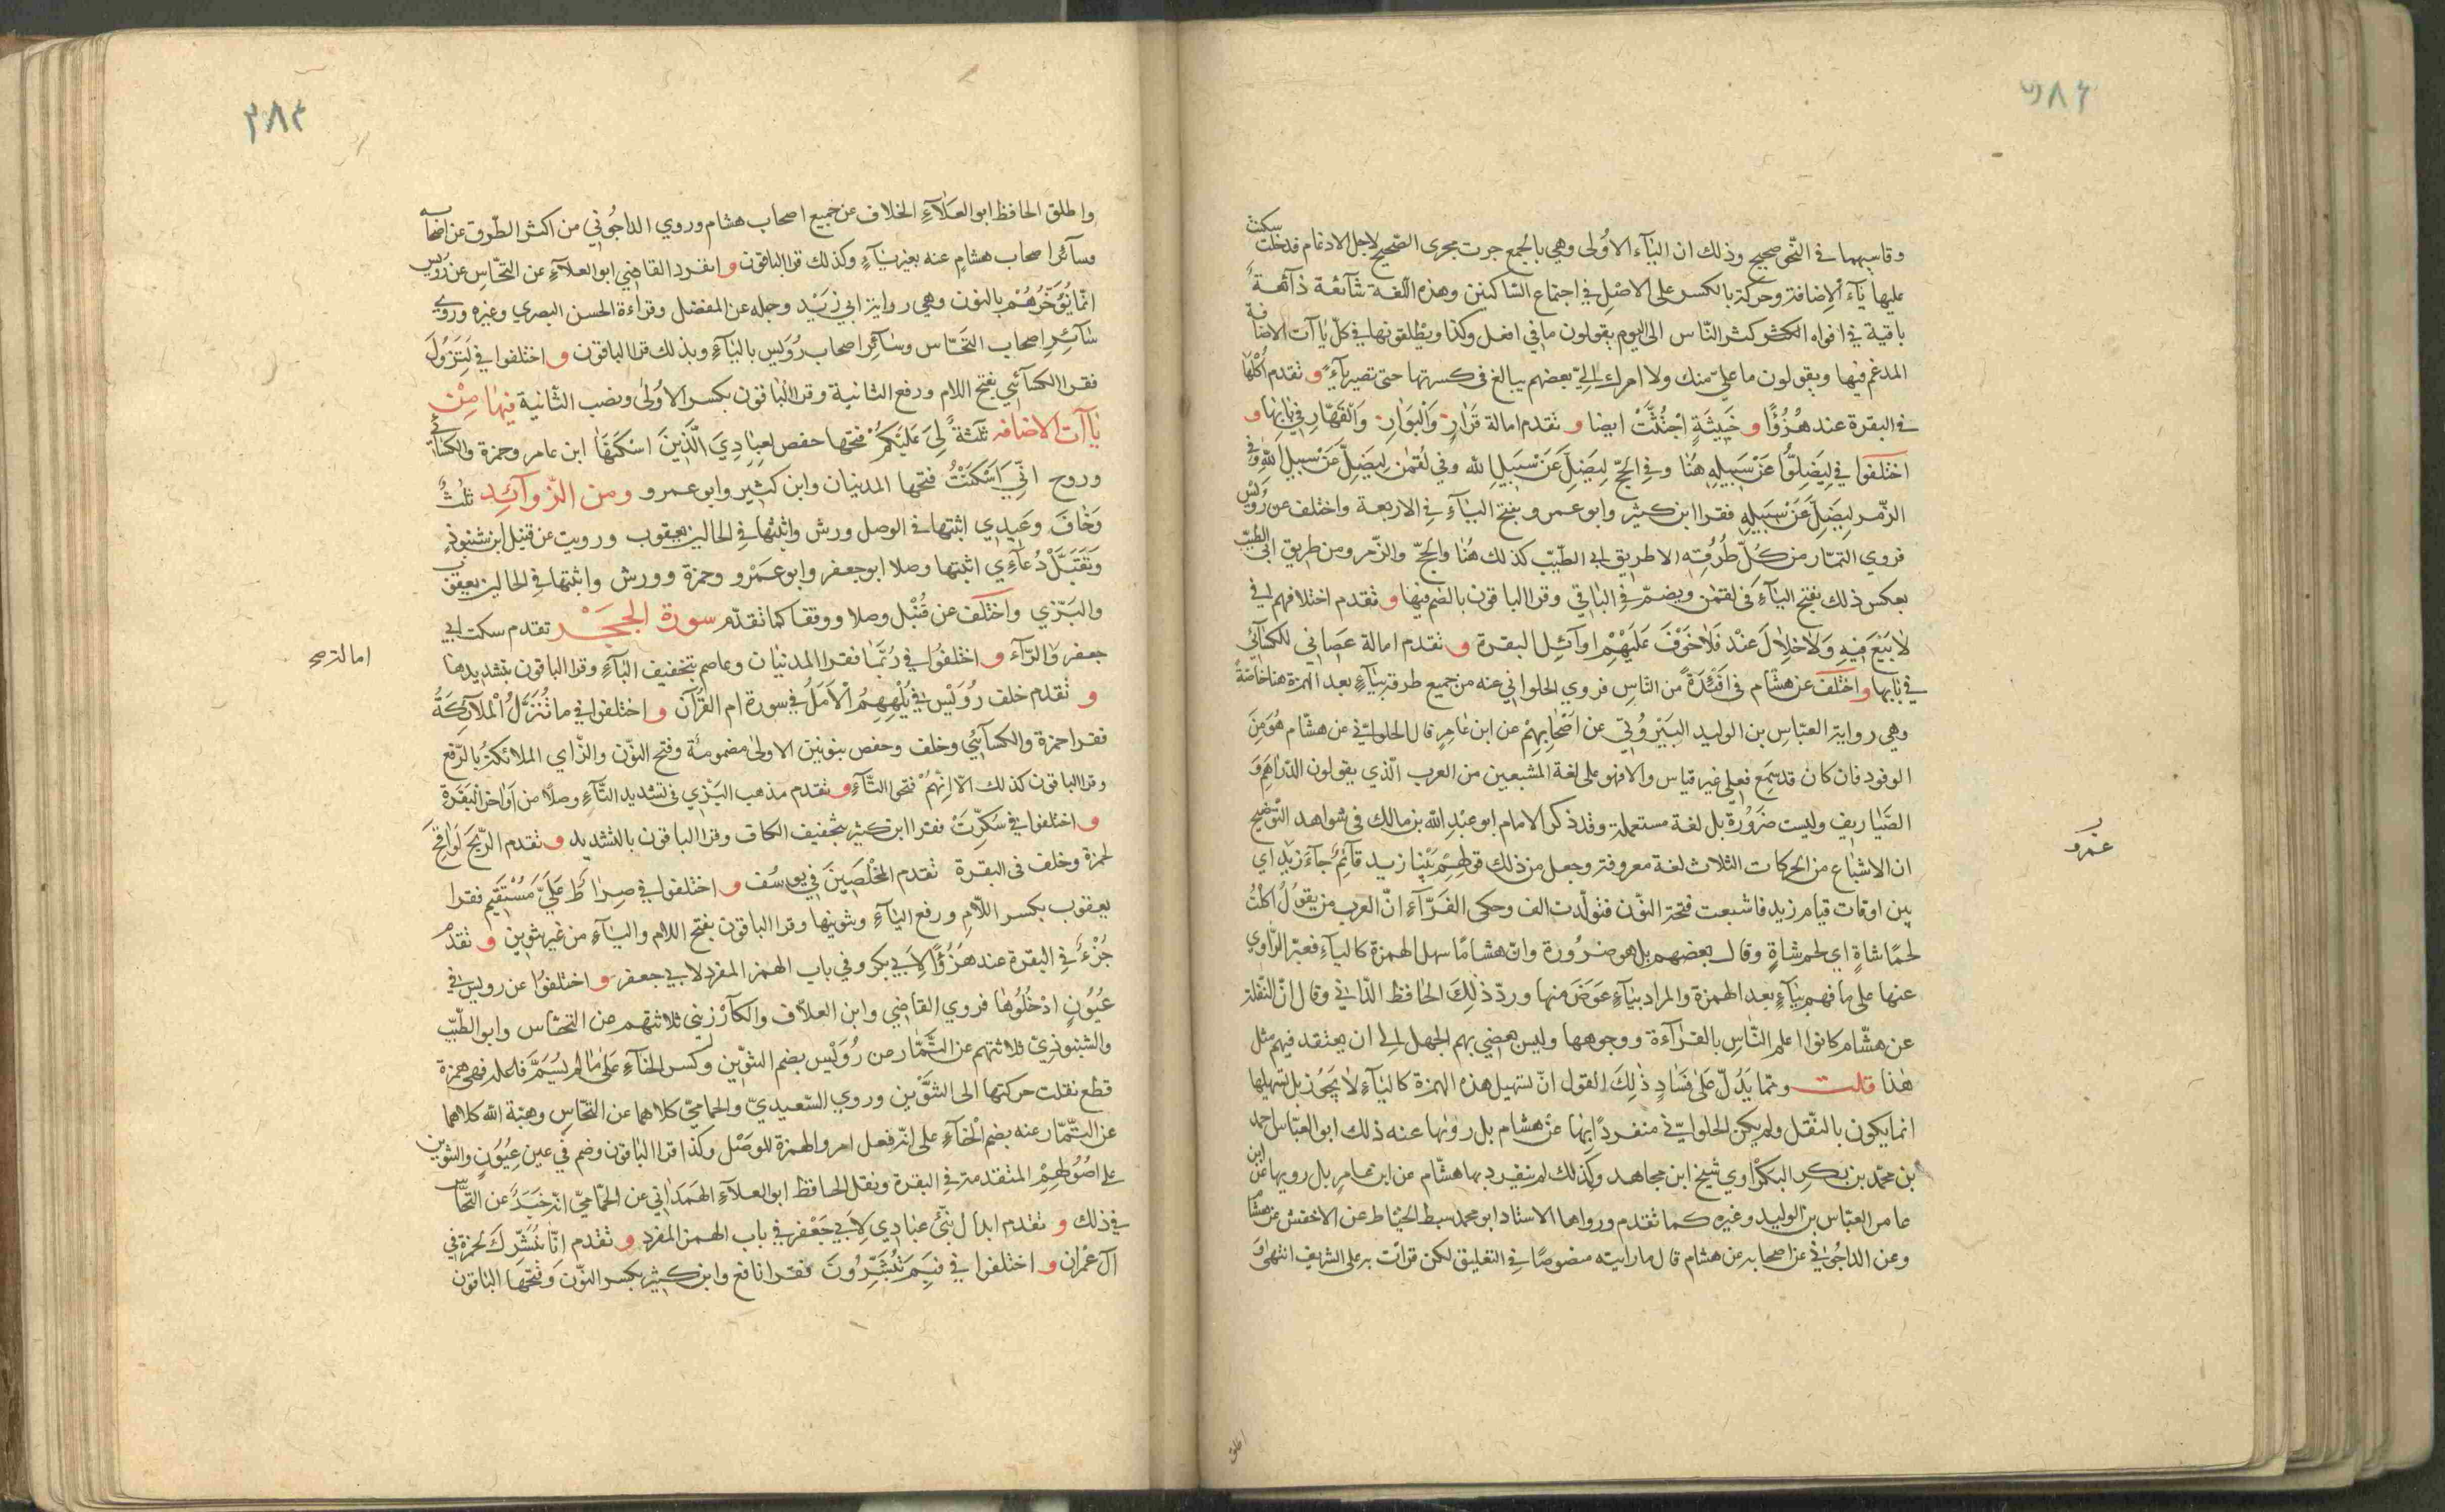 وقاسمهما في النّحو صحيح وذلك ان اليآء الاُولى وهي بالجمع جرت مجرى الصّحيح لاجل الادغام فدخلت سكنت
عليها يآء الاِضافة وحركت بالكسر على الاصْلِ في اجتماع السّاكنين وهذه اللّغة شآئعة ذآئعةٌ
باقية في افواه اكثر النّاس الى اليوم يقولون ما في افعل وكذا ويطلقونها في كلّ يآات الاضافة
المدغم فيها ويقولون ما عليّ منك ولا امرك الِيّ بعضهم يبالغ في كسرتها حتى تصير يآءً و تقدم اُكُلها
في البقرة عند هُزُؤًا و خَبِيثَةٍ اجْتُثَّتْ ايضا و تقدم امالة قَرَارٍ وَالْبَوَارِ وَالْقَهَّارِ في بابها و
اختلَفوا في لِيَضِلُّوا عَنْ سَبِيلِهِ هُنا وفي الحَجّ لِيَضِلَّ عَنْ سَبِيلِ الله وفي لُقمٰن لِيَضِلَّ عَنْ سَبِيلِ اللّه وفي
الزّمر لِيَضِلَّ عَنْ سَبِيلِهِ فقرا ابن كثير وابو عمرو بفتح اليآء في الاربعة واختلف عن رُوَيْس
فروي التمّار من كُلّ طُرُقِه الا طريق ابي الطّيّب كذلك هُنا والحَجّ والزّمر ومن طريق ابي الطيّب
بعكس ذلك بفتح اليآء في لقمٰن ويضمّ في الباقي وقرا الباقون بالضم فيها و تقدم اختلافهم في
لَا بَيْعَ فِيهِ وَلَا خِلَالَ عند فَلَا خَوْفَ عَلَيْهِمْ اوآئِل البقرة و تقدم امالة عَصَاني للكسآئي
في بابها و اختلَف عن هشام في اَفْئِدَةً من النّاسِ فروي الحلواني عنه من جميع طرقه بيآءٍ بعد الهمزة هنا خاصّةً
وهي رواية العبّاسِ بن الوليد البَيْرُوتي عن اَصْحَابِهِمْ عن ابن عَامِرٍ قال الحلوانيّ عن هشّام هُوَ مِنَ
الوفود فان كان قد سُمِعَ فعلى غير قياس والا فهو على لغة المشبعين من العرب الّذي يقولون الدّراهِيم وَ
الصَّياريف وليست ضَرُورةً بل لغة مستعملة وقد ذكر الامام ابو عبْدِ اللّه بن مالك في شواهد التّوضيح
ان الاشباع من الحركات الثلاث لغة معروفة وجعل من ذلك قولهم بَيْنا زيد قآئِمٌ جآءَ زيد اي
بين اوقات قيام زيد فاشبعت فتحة النّون فتولّدت الف وحكى الفَرّآءِ انّ العرب من يقولُ اكلتُ
لحمًا شاةٍ اي لحم شاةٍ وقال بعضهم بل هو ضرُورة وانّ هشامًا سهل الهمزة كاليآء فعبّر الرّاوي
عنها على ما فهم بيآءٍ بعد الهمزة والمراد بيآءٍ عوض منها وردّ ذٰلِكَ الحافظ الدّاني وقال انّ النّقلة
عن هشّام كانوا اعلم النّاسِ بالقرآءة ووجوهها وليس يفضي بهم الجهل الى ان يعتقد فيهم مثل
هٰذا قلت وممّا يَدُلّ على فَسَادِ ذٰلِكَ القول انّ تسهيل هذه الهمزة كاليآء لا يَجُوز بل تسهيلها
انما يكون بالنّقل ولم يكن الحلوانيّ منفردًا بها عن هشام بل رواها عنه ذلك ابو العبّاس احمد
بن محمّد بن بكر البكْرٰاوي شيخ ابن مجاهد وكذلك لم ينفرد بها هشّام عن ابن عامرٍ بل رويها عن ابن
عامر العبّاس بن الوليد وغيره كما تقدم ورواها الاستاد ابو محمد سبط الخيّاط عن الاخفش عن هشام
وعن الداجُوني عن اصحابه عن هشام قال ما رايته منصوصًا في التعليق لكن قرات به على الشريف انتهى و
عمرو
اطلق
٣٨٣
واطلق الحافظ ابو العَلاَءِ الخلاف عن جميع اصحاب هشام وروي الداجُوني من اكثر الطّرق عن اصحابه
وسآئر اصحاب هشامٍ عنه بغير يآءٍ وكذلك قرا الباقون و انفرد القاضي ابو العلآءِ عن النخّاس عن رُوَيْس
انّما نُؤَخّرُهُمْ بالنون وهي رواية ابي زَيْد وجبله عن المفضل وقراءة الحسن البصري وغيره وروي
سآئِرِ اصحاب النخّاس وسآئر اصحاب رُوَيس باليآءِ وبذلك قرا الباقون و اختلفوا في لَتَزُولَ
فقرا الكسآئي بفتح اللام ورفع الثانية وقرا الباقون بكسر الاُولى ونصب الثّانية فيها مِنْ
ياآت الاضافه ثلثةٌ لِيَ عَلَيْكُمْ فتحها حفص لِعِبَادِيَ الَّذِينَ اسْكَنَهَا ابن عامر وحمزة والكسائي
وروح انّي اَسْكَنْتُ فتحها المدنيان وابن كثير وابو عمرو ومن الزّوآئِد ثلثٌ
وَخَافَ وَعِيدِي اثبتها في الوصل ورش واثبتها في الحالين يعقوب ورويت عن قنبل ابن شنبوذ
وَتَقَبَّلْ دُعَآءِي اثبتها وصلا ابو جعفر وابو عَمْرو وحمزة وورش واثبتها في الحالين يعقوب
والبَزّي واختلف عن قُنْبل وصلا ووقفا كما تقدّم سورة الحِجْر تقدم سكت ابي
جعفر والرّآء و اختلفُوا في رُبَمَا فقرا المدنيان وعاصم بتخفيف البآءِ وقرا الباقون بتشديدها
و تقدم خلف رُوَيْس في يُلْهِهِمُ الْاَمَلُ في سورة ام القُرْآن و اختلفوا في ما نُنَزِّلُ الْملآئِكَةُ
فقرا حمزة والكسآئي وخلف وحفص بنونين الاولى مضمومة وفتح النّون والزّاي الملائكةَ بالرّفع
وقرا الباقون كذلك الاّ انّهُمْ فتحوا التّآء و تقدم مذهب البَزي في تشديد التّآءِ وصلاً من اَواخر البَقَرة
و اختلفوا في سُكِّرَتْ فقرا ابن كثير بتخفيف الكاف وقرا الباقون بالتشديد و تقدم الرِّيحَ لَوَاقِحَ
لحمزة وخلف في البقرة تقدم المخْلَصِينَ في يوسُف و اختلفوا في صِرَاطٌ عَلَيَّ مُسْتَقِيم فقرا
يعقوب بكسر اللّام ورفع اليآءِ وتنوينها وقرا الباقون بفتح اللام واليآءِ من غير تنوين و تقدم
جُزْءٌ في البقرة عند هُزُؤًا لابي بكر وفي باب الهمز المفرد لابي جعفر و اختلفوُا عن رويس في
عُيُونٍ ادْخُلُوهَا فروي القاضي وابن العلاّف والكارْزِيني ثلاثتهم عن النخّاس وابو الطّيّب
والشنبوذيّ ثلاثتهم عن التَّمّار عن رُوَيْس بضم التنوين وكسر الخآءِ عَلى مَا لَمْ يُسَمَّ فاعله فهي همزة
قطع نقلت حركتها الى التنوين وروي السّعيديّ والحماميّ كلاهما عن النخّاس وهبة اللّه كلاهما
عن التّمّار عنه بضم الخآءِ على انّه فعل امر والهمزة للوصْل وكذا قرا الباقون وضم في عين عِيُونٍ والتنوين
على اصُولِهِمْ المتقدمة في البقرة ونقل الحافظ ابو العلآءِ الهَمَدَاني عن الحمّاميّ انّه خيّر عن النّخّاس
في ذلك و تقدم ابدال نَبِّئْ عِبَادِي لاَبي جَعْفر في باب الهمز المفرد و تقدم انّا نُبَشّرُكَ لحمزة في
آل عمران و اختلفوا في فَبِمَ تُبَشِّرُونَ فقرا نافع وابن كثير بكسر النّون وفتحها الباقون
امالته صح